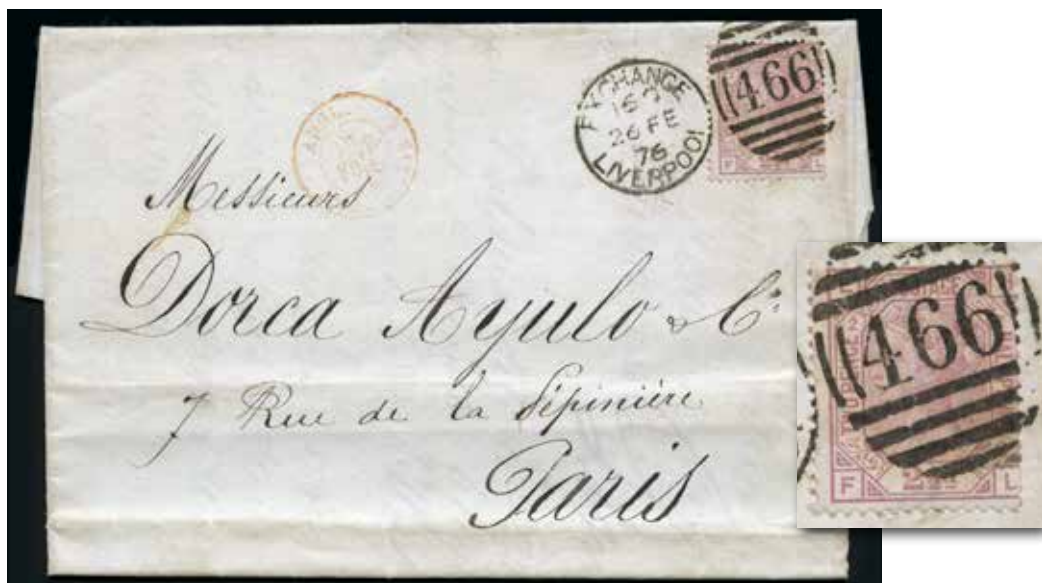 EXCHANGE
26 FE
76
LIVERPOOL
466
F L
Messieurs
Dorca Ayulo & Cᵉ
7 Rue de la Pépinière
Paris
466
F L